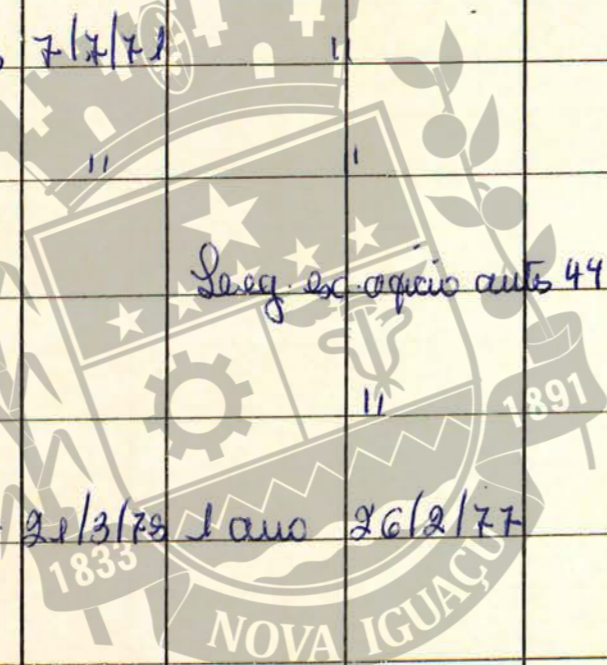 7/7/71 "
" "
Leeg. ex. ofício auto 44
"
21/3/73 1 ano 26/2/77
1833 1891
NOVA IGUAÇU